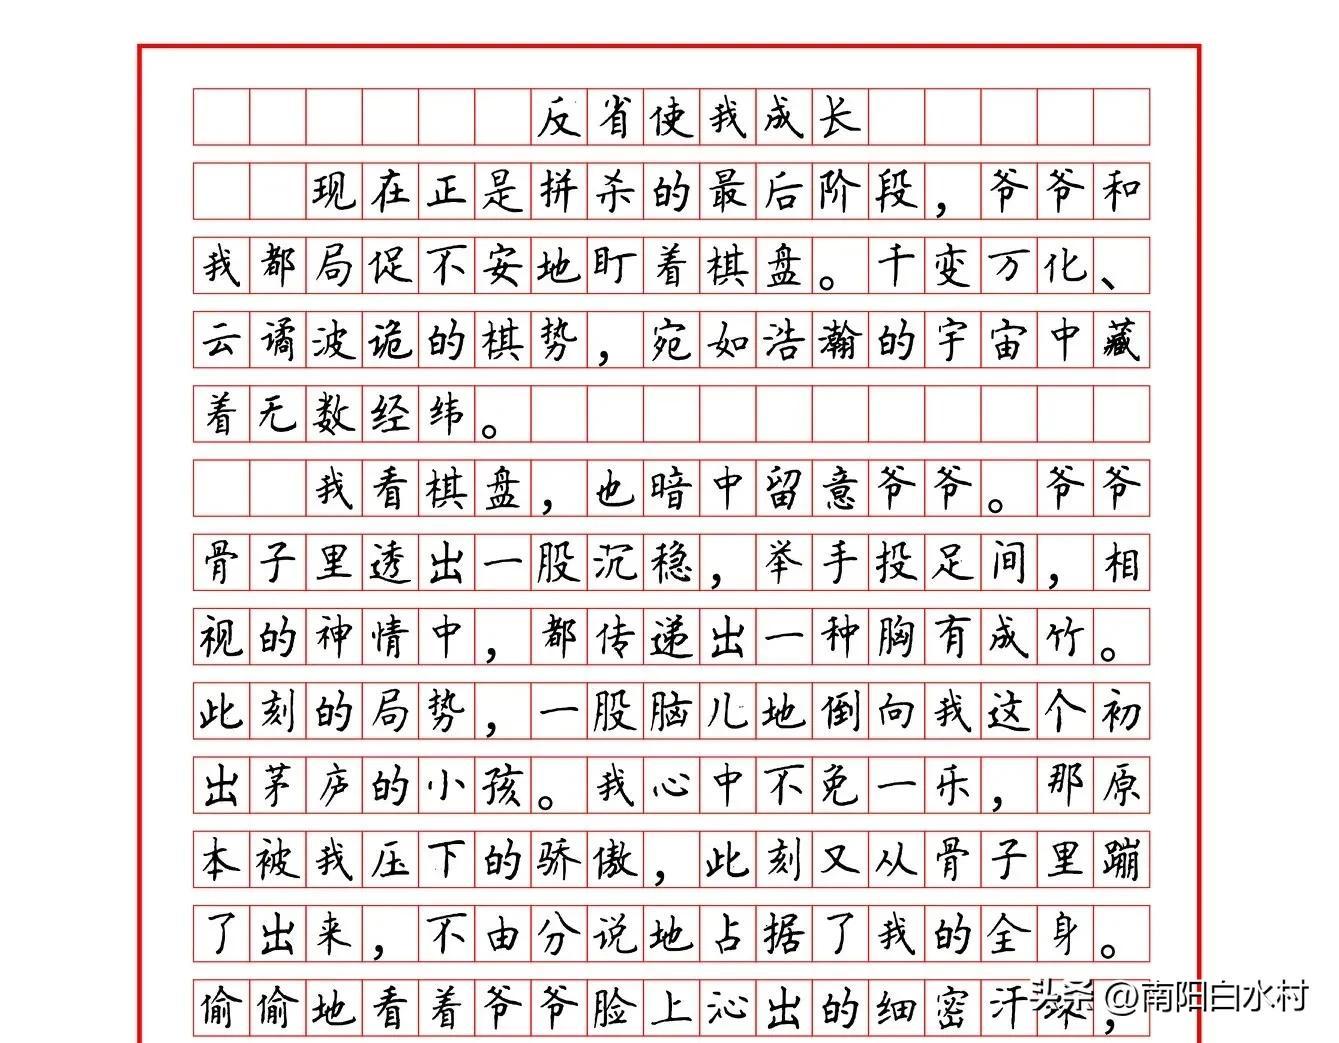 反省使我成长
现在正是拼杀的最后阶段，爷爷和
我都局促不安地盯着棋盘。千变万化、
云谲波诡的棋势，宛如浩瀚的宇宙中藏
着无数经纬。
我看棋盘，也暗中留意爷爷。爷爷
骨子里透出一股沉稳，举手投足间，相
视的神情中，都传递出一种胸有成竹。
此刻的局势，一股脑儿地倒向我这个初
出茅庐的小孩。我心中不免一乐，那原
本被我压下的骄傲，此刻又从骨子里蹦
了出来，不由分说地占据了我的全身。
偷偷地看着爷爷脸上沁出的细密汗珠，
头条 @南阳白水村